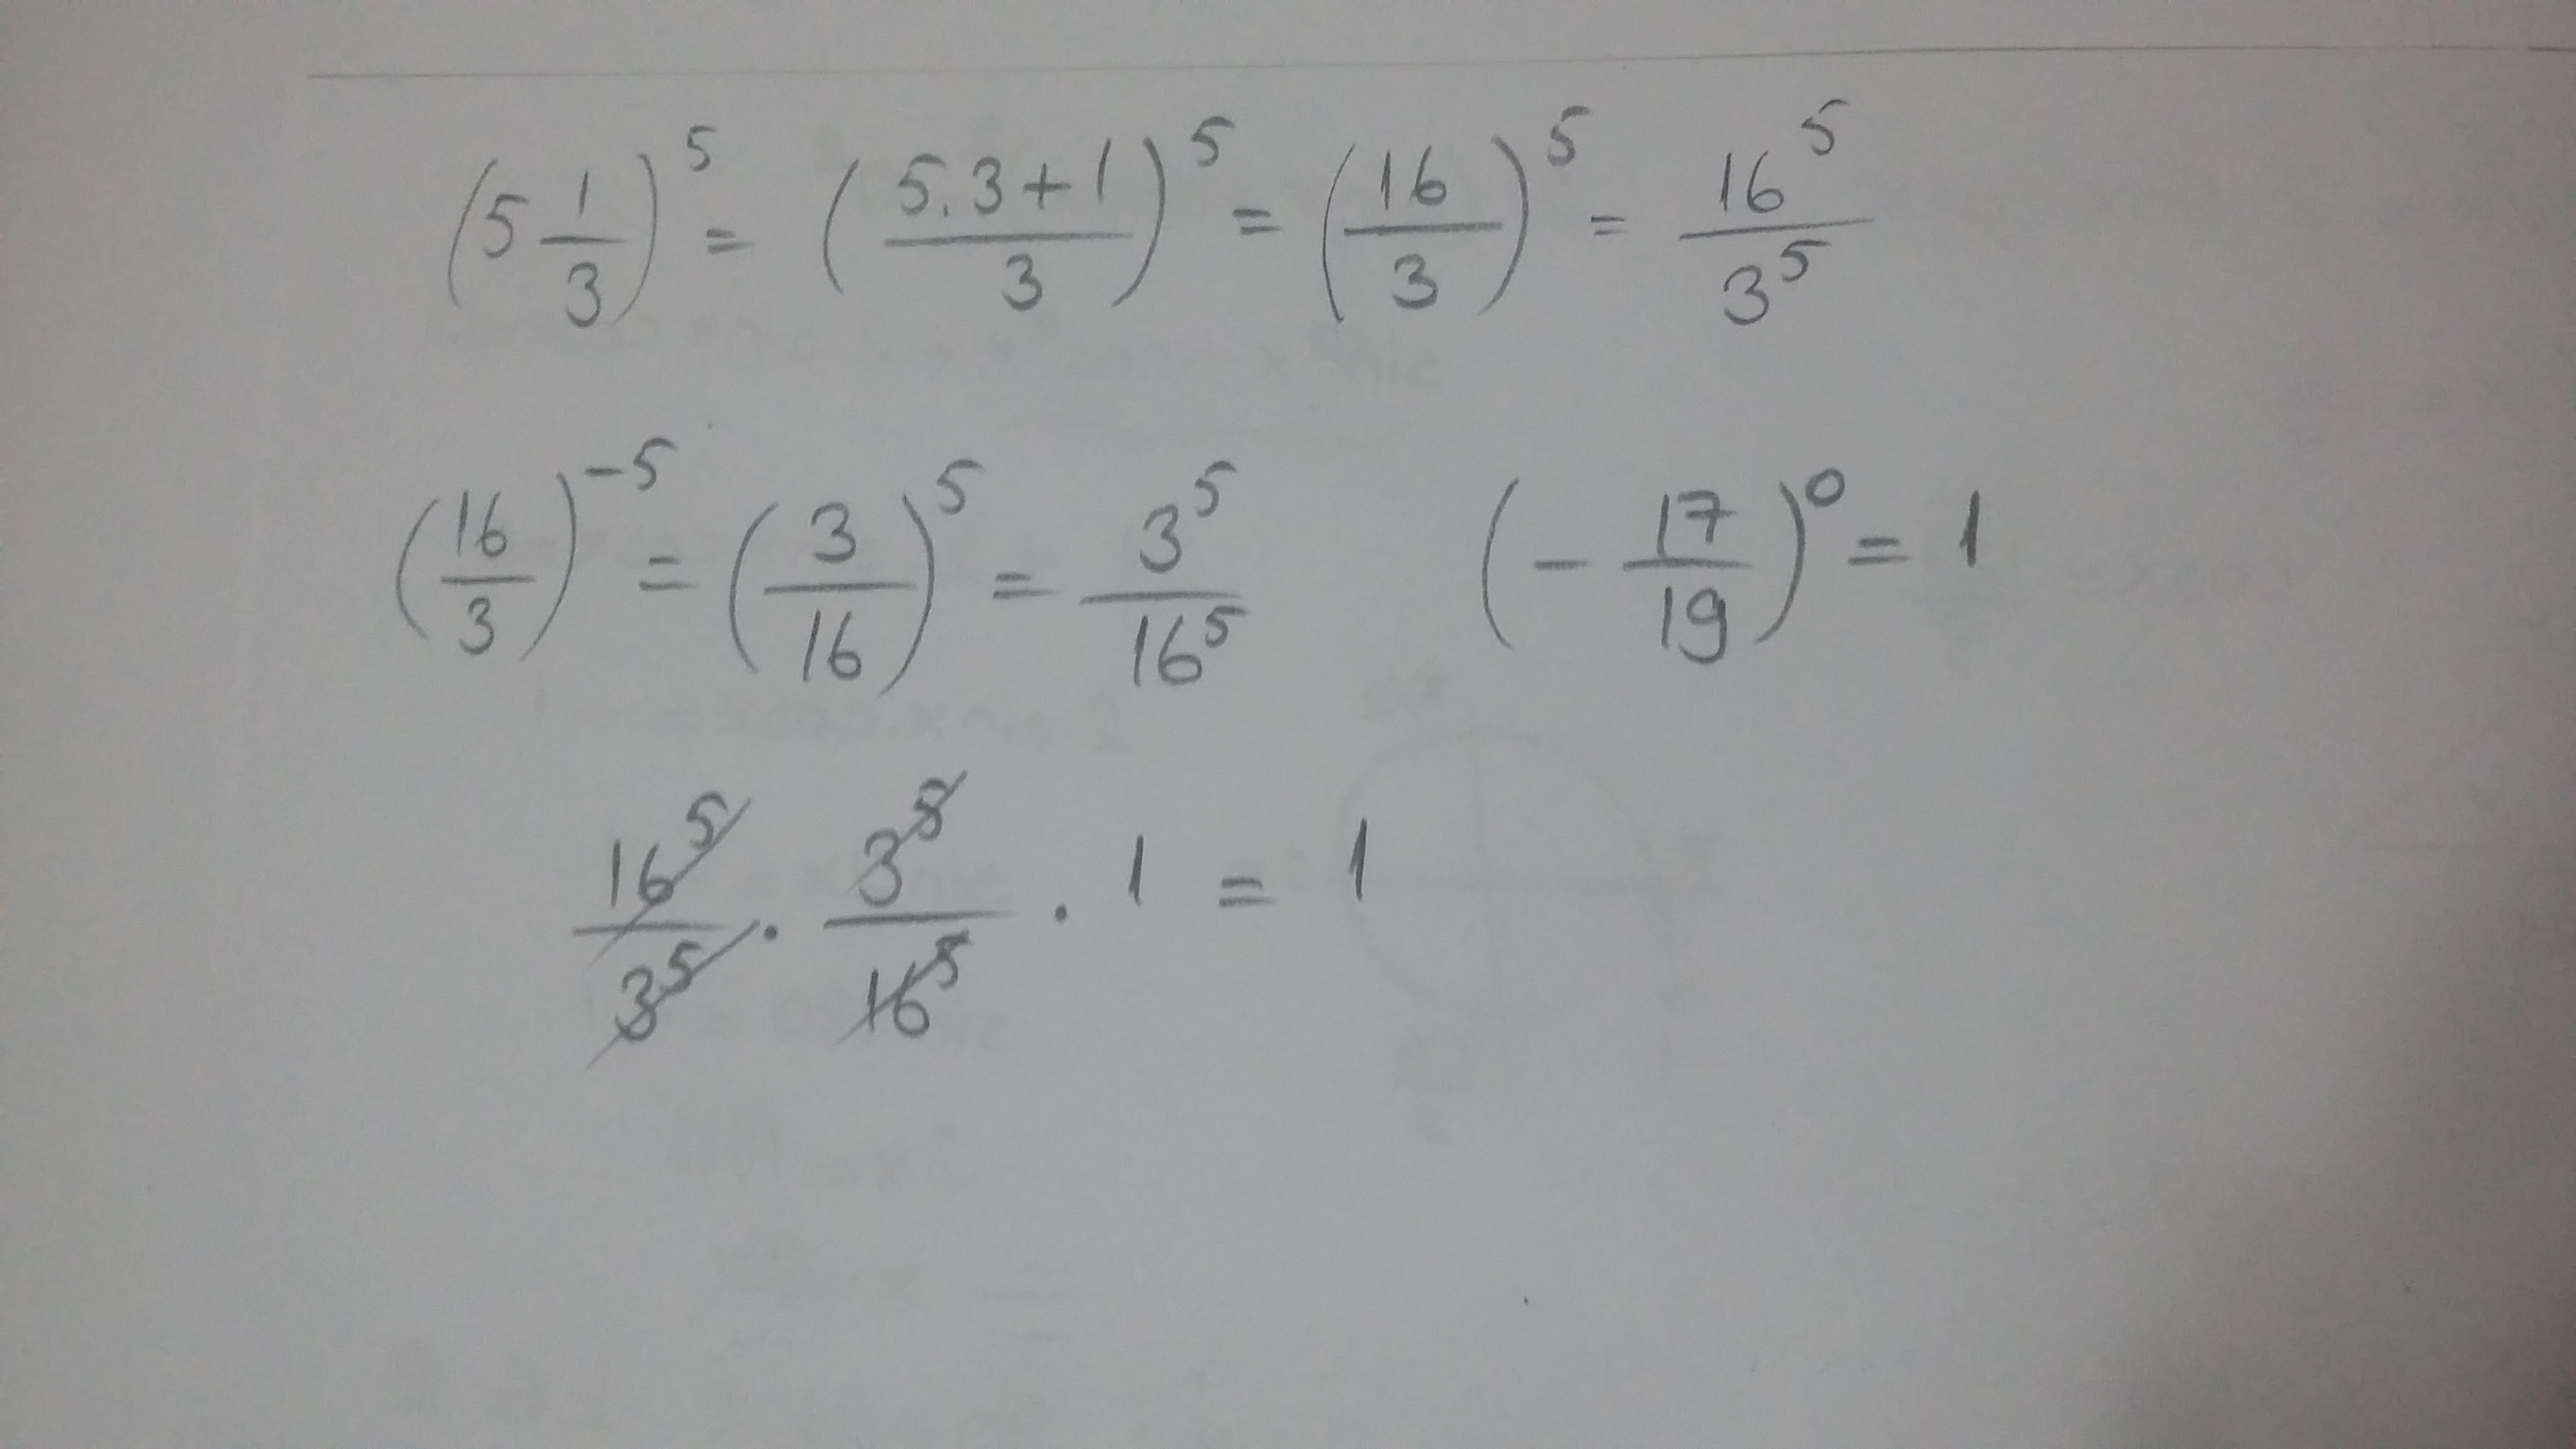 (5 1/3)^5 = (5.3+1/3)^5 = (16/3)^5 = 16^5/3^5
(16/3)^-5 = (3/16)^5 = 3^5/16^5 (-17/19)^0 = 1
16^5/3^5 . 3^5/16^5 . 1 = 1